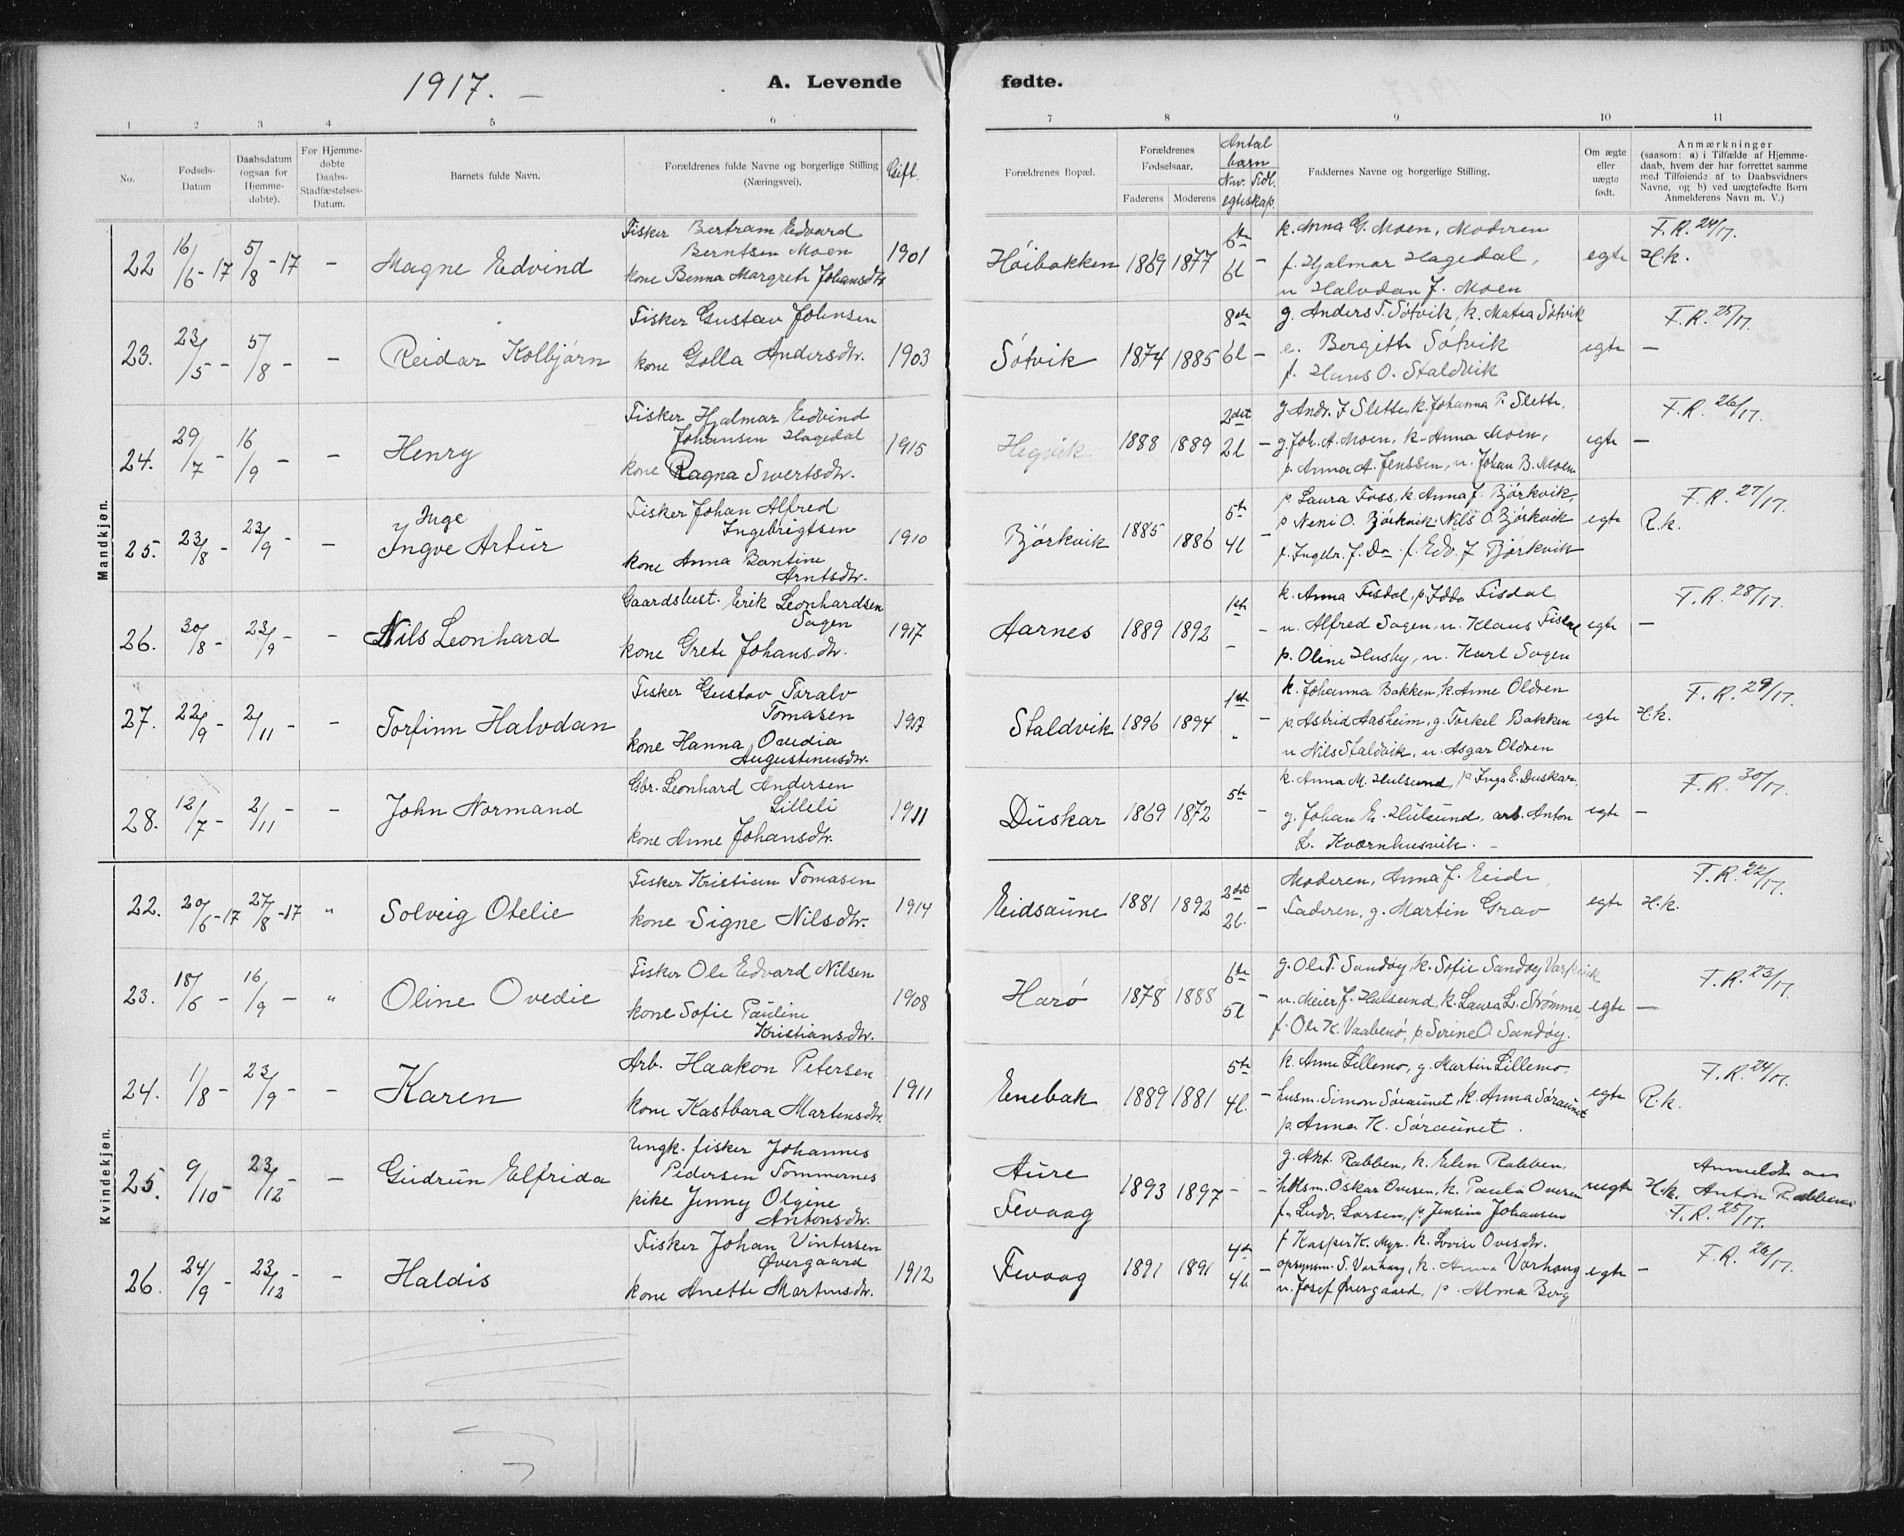 1917. —
A. Levende fødte.
1 2 3 4 5 6 7 8 9. 10 11
No.
Fødsels-Datum
Daabsdatum (ogsaa for Hjemme-døbte).
For Hjemme-døbte Daabs-Stadfæstelses-Datum.
Barnets fulde Navn.
Forældrenes fulde Navne og borgerlige Stilling (Næringsvei).
Gift.
Forældrenes Bopæl.
Forældrenes Fødselsaar.
Faderens Moderens
Antal barn
Nuv. Tidl.
egteskap.
Faddernes Navne og borgerlige Stilling.
Om ægte eller uægte født.
Anmærkninger
(saasom: a) i Tilfælde af Hjemme-daab, hvem der har forrettet samme med Tilføiende af to Daabsvidners Navne, og b) ved uægtefødte Børn Anmelderens Navn m. V.)
Mandkjøn.
22 16/6-17 5/8-17 — Magne Edvind
Fisker Bertram Edvard
Berntsen Moen
kone Benna Margrete Johansdtr
1901 Høibakken 1869 1877 6te 6l —
k. Anna G. Moen, Moderen
f. Hjalmar Hagedal,
u Halvdan J. Moen
egte H.k. F.R. 24/17.
23. 23/5 - 5/8 - — Reidar Kolbjørn
Fisker Gustav Johnsen
kone Golla Andersdtr.
1903 Søtvik 1874 1885 8de 6l —
g. Anders T. Søtvik, k. Matea Søtvik
e. Bergitte Søtvik
f. Hans O. Staldvik
egte — F.R. 25/17.
24. 29/7 - 16/9 - — Henry
Fisker Hjalmar Edvind
Johansen Hagedal
kone Ragna Sivertsdtr.
1915 Hegvik 1888 1889 2det 2l —
g Andr. J Slette, k. Johanna P. Slette,
g. Joh. A. Moen, k. Anna Moen,
p. Anna A. Jenssen, u. Johan B. Moen
egte — F.R. 26/17.
25. 23/8 - 23/9 - —
Inge
Ingve Artur
Fisker Johan Alfred
Ingebrigtsen
kone Anna Bentine
Arntsdtr.
1910 Bjørkvik 1885 1886 5te 4l —
p Laura Foss, k. Anna J. Bjørkvik,
p Neni O. Bjørkvik. Nils O. Bjørkvik
f. Ingebr. J. Do. f. Edv. J Bjørkvik
egte R.k. F.R. 27/17.
26. 30/8 - 23/9 - — Nils Leonhard
Gaardsbest. Erik Leonhardsen
Sagen
kone Grete Johansdtr.
1917 Aarnes 1889 1892 1ste — —
k. Anna Fisdal, p Edda Fisdal
u. Alfred Sagen, u. Klaus Fisdal
p. Oline Husby, u. Karl Sagen
egte — F.R. 28/17.
27. 22/9 - 2/11 - — Torfinn Halvdan
Fisker Gustav Toralv
Tomasen
kone Hanna Ovedia
Augustinusdtr.
1917 Staldvik 1896 1894 1ste " —
k. Johanna Bakken, k. Anne Oldren
p Astrid Aasheim, g. Torkel Bakken
u Nils Staldvik, u. Asgar Oldren
egte H.k. F.R. 29/17.
28. 12/7 - 2/11 - — John Normand
Gbr. Leonhard Andersen
Lilleli
kone Anne Johansdtr.
1911 Duskar 1869 1872 5te —
k. Anna M. Hulsund, p Inga E. Duskar
g. Johan E. Hulsund, arb. Anton
L. Kvernhusvik. —
egte — F.R. 30/17.
Kvindekjøn.
22. 20/6-17 27/8-17 " Solveig Otelie
Fisker Kristien Tomasen
kone Signe Nilsdtr.
1914 Eidsaune 1881 1892 2det 2l. —
Moderen, Anna J. Eide,
Faderen, g. Martin Grav
egte H.k. F.R. 22/17.
23. 18/6 - 16/9 - " Oline Ovedie
Fisker Ole Edvard Nilsen
kone Sofie Pauline
Kristiansdtr.
1908 Harø 1878 1888 6te 5l —
g. Ole T. Sandøy, k. Sofie Sandøy
u. Meier J. Hulsund, k. Laura L. Strømme
f. Ole K. Vaabenø, p Serine O. Sandøy.
egte — F.R. 23/17.
24. 1/8 - 23/9 - — Karen
Arb. Haakon Petersen
kone Kastbara Martinsdtr.
1911 Enebak 1889 1881 5te 4l. —
k. Anne Lillemo, g. Martin Lillemo
husm. Simon Søraunet, k. Anna Søraunet
p. Anna K. Søraunet.
egte R.k. F.R. 24/17.
25. 9/10 - 23/12 - — Gudrun Elfrida
Ungk. fisker Johannes
Pedersen Tommernes
pike Jenny Olgine
Antonsdtr.
Aure
Fevaag
1893 1897 — —
g. Akt. Rabben, k. Elen Rabben,
hblsm. Oskar Ovesen, k. Paula Ovesen
f. Ludv. Larsen, p. Jensine Johansen
uegte H.k.
Anmeldt av
Anton Rabben
F.R. 25/17.
26. 24/9 - 23/12 - — Haldis
Fisker Johan Vintersen
Øvergaard
kone Anette Martinsdtr.
1912 Fevaag 1891 1891 4de 4l. —
f Kasper K. Myr. k. Lovise Ovesdtr.
opsynsm. S. Varhaug, k. Anna Varhaug
u. Josef Øvergaard, p. Alma Berg
egte — F.R. 26/17.